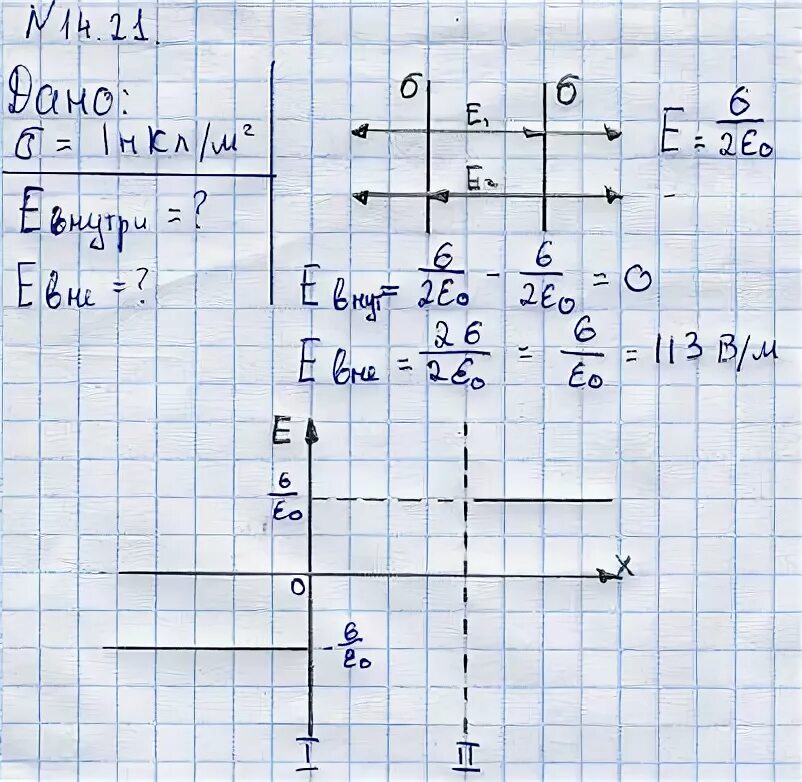 N 14.21.
Дано:
σ = 1нКл/м²
E внутри = ?
E вне = ?
σ σ
E₁
E₂
E = σ/2ε₀
E внут = σ/2ε₀ - σ/2ε₀ = 0
E вне = 2σ/2ε₀ = σ/ε₀ = 113 В/м
E
σ/ε₀
0
X
-σ/ε₀
I II